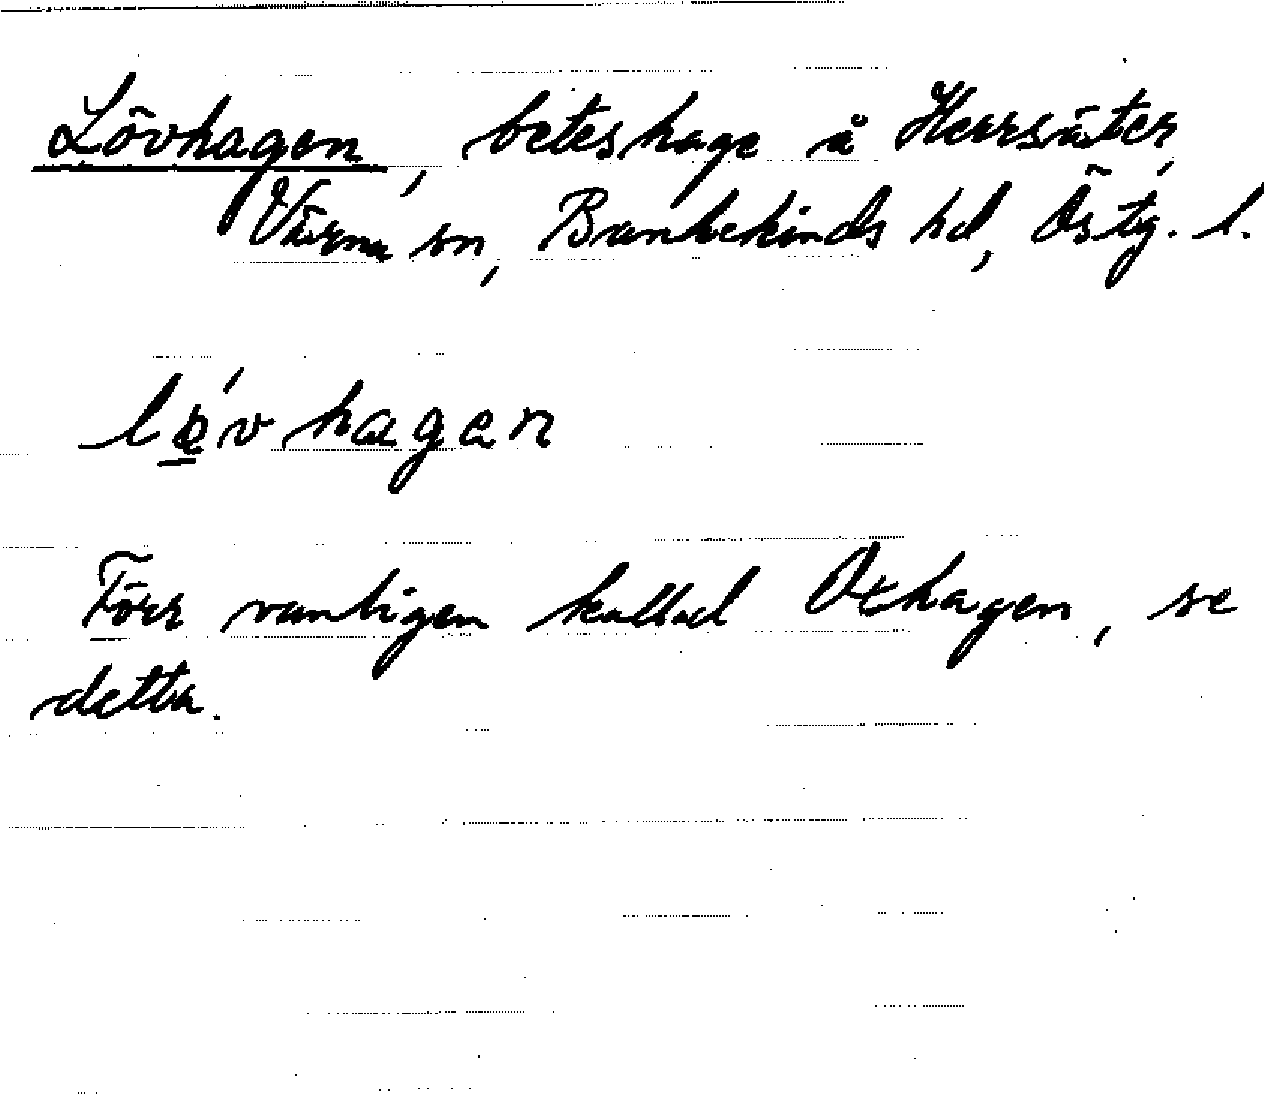 Lövhagen, beteshage å Herrsäter,
Värna sn, Bankekinds hd, Östg. l.
löv hagen
Förr vanligen kallad Oxhagen, se
detta.